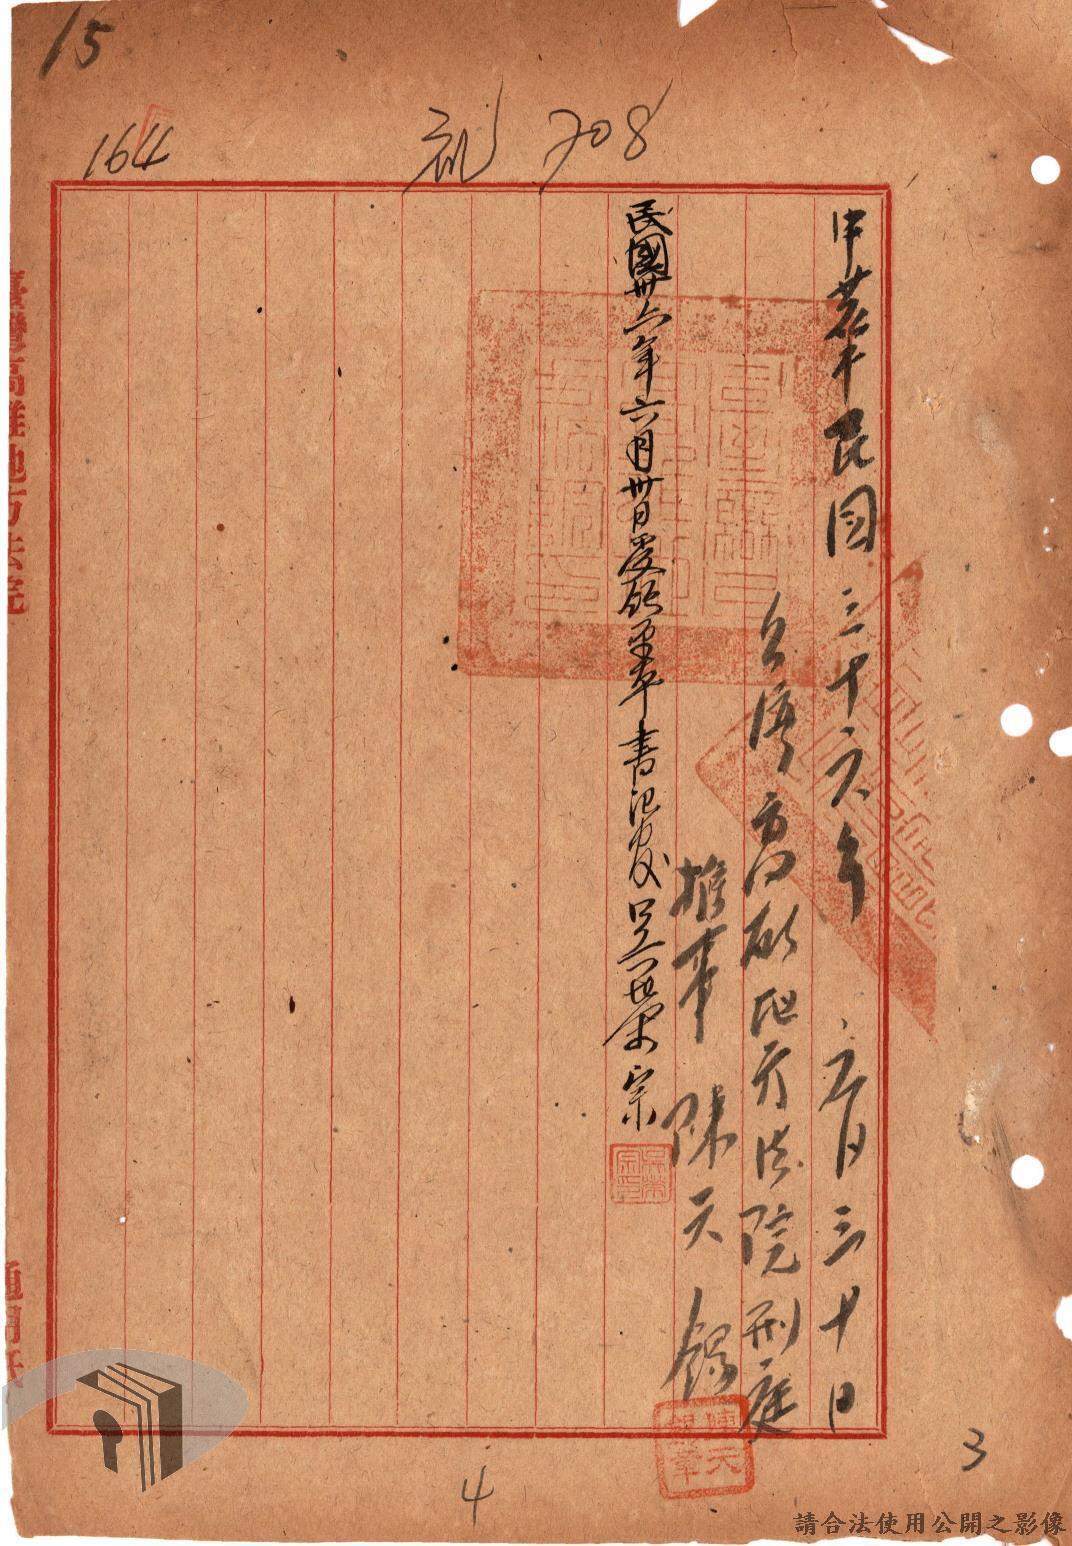 15
164
乱 708
中華民國三十六年六月三十日
台湾高雄地方法院刑庭
推事 陳天錫
民國卅六年六月卅日受領原本 書記官 吳榮宗
臺灣高雄地方法院
通用紙
3
4
請合法使用公開之影像